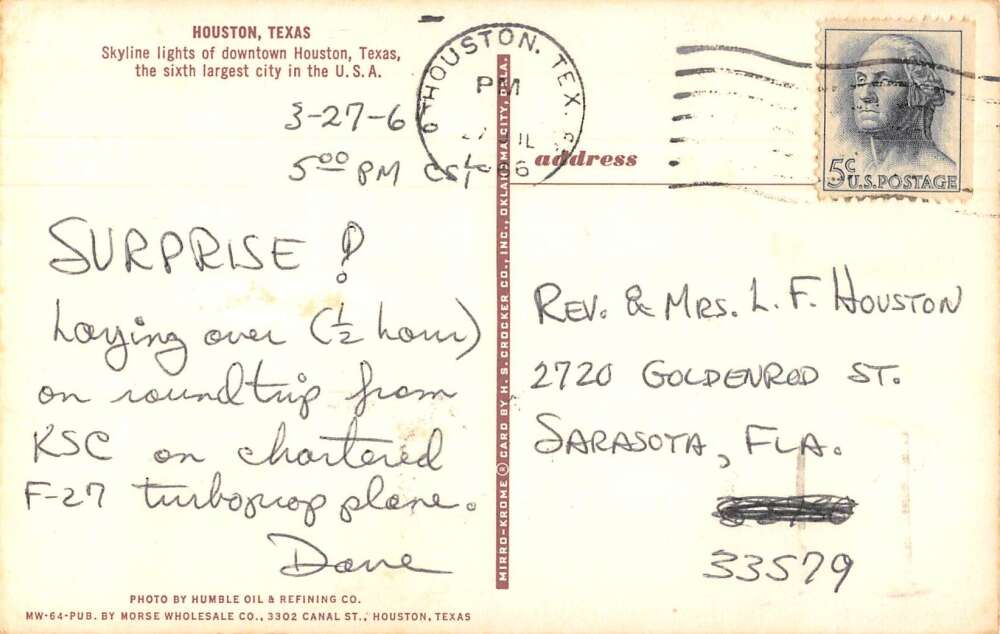 HOUSTON, TEXAS
Skyline lights of downtown Houston, Texas,
the sixth largest city in the U. S. A.
3-27-6
5⁰⁰ PM CST
SURPRISE!
Laying over (½ hour)
on roundtrip from
KSC on chartered
F-27 turboprop plane.
Dave
PHOTO BY HUMBLE OIL & REFINING CO.
MW-64-PUB. BY MORSE WHOLESALE CO., 3302 CANAL ST., HOUSTON, TEXAS
MIRRO-KROME® CARD BY H. S. CROCKER CO., INC., OKLAHOMA CITY, OKLA.
HOUSTON, TEX.
PM
address
5¢
U.S. POSTAGE
REV. & MRS. L. F. HOUSTON
2720 GOLDENROD ST.
SARASOTA, FLA.
33579